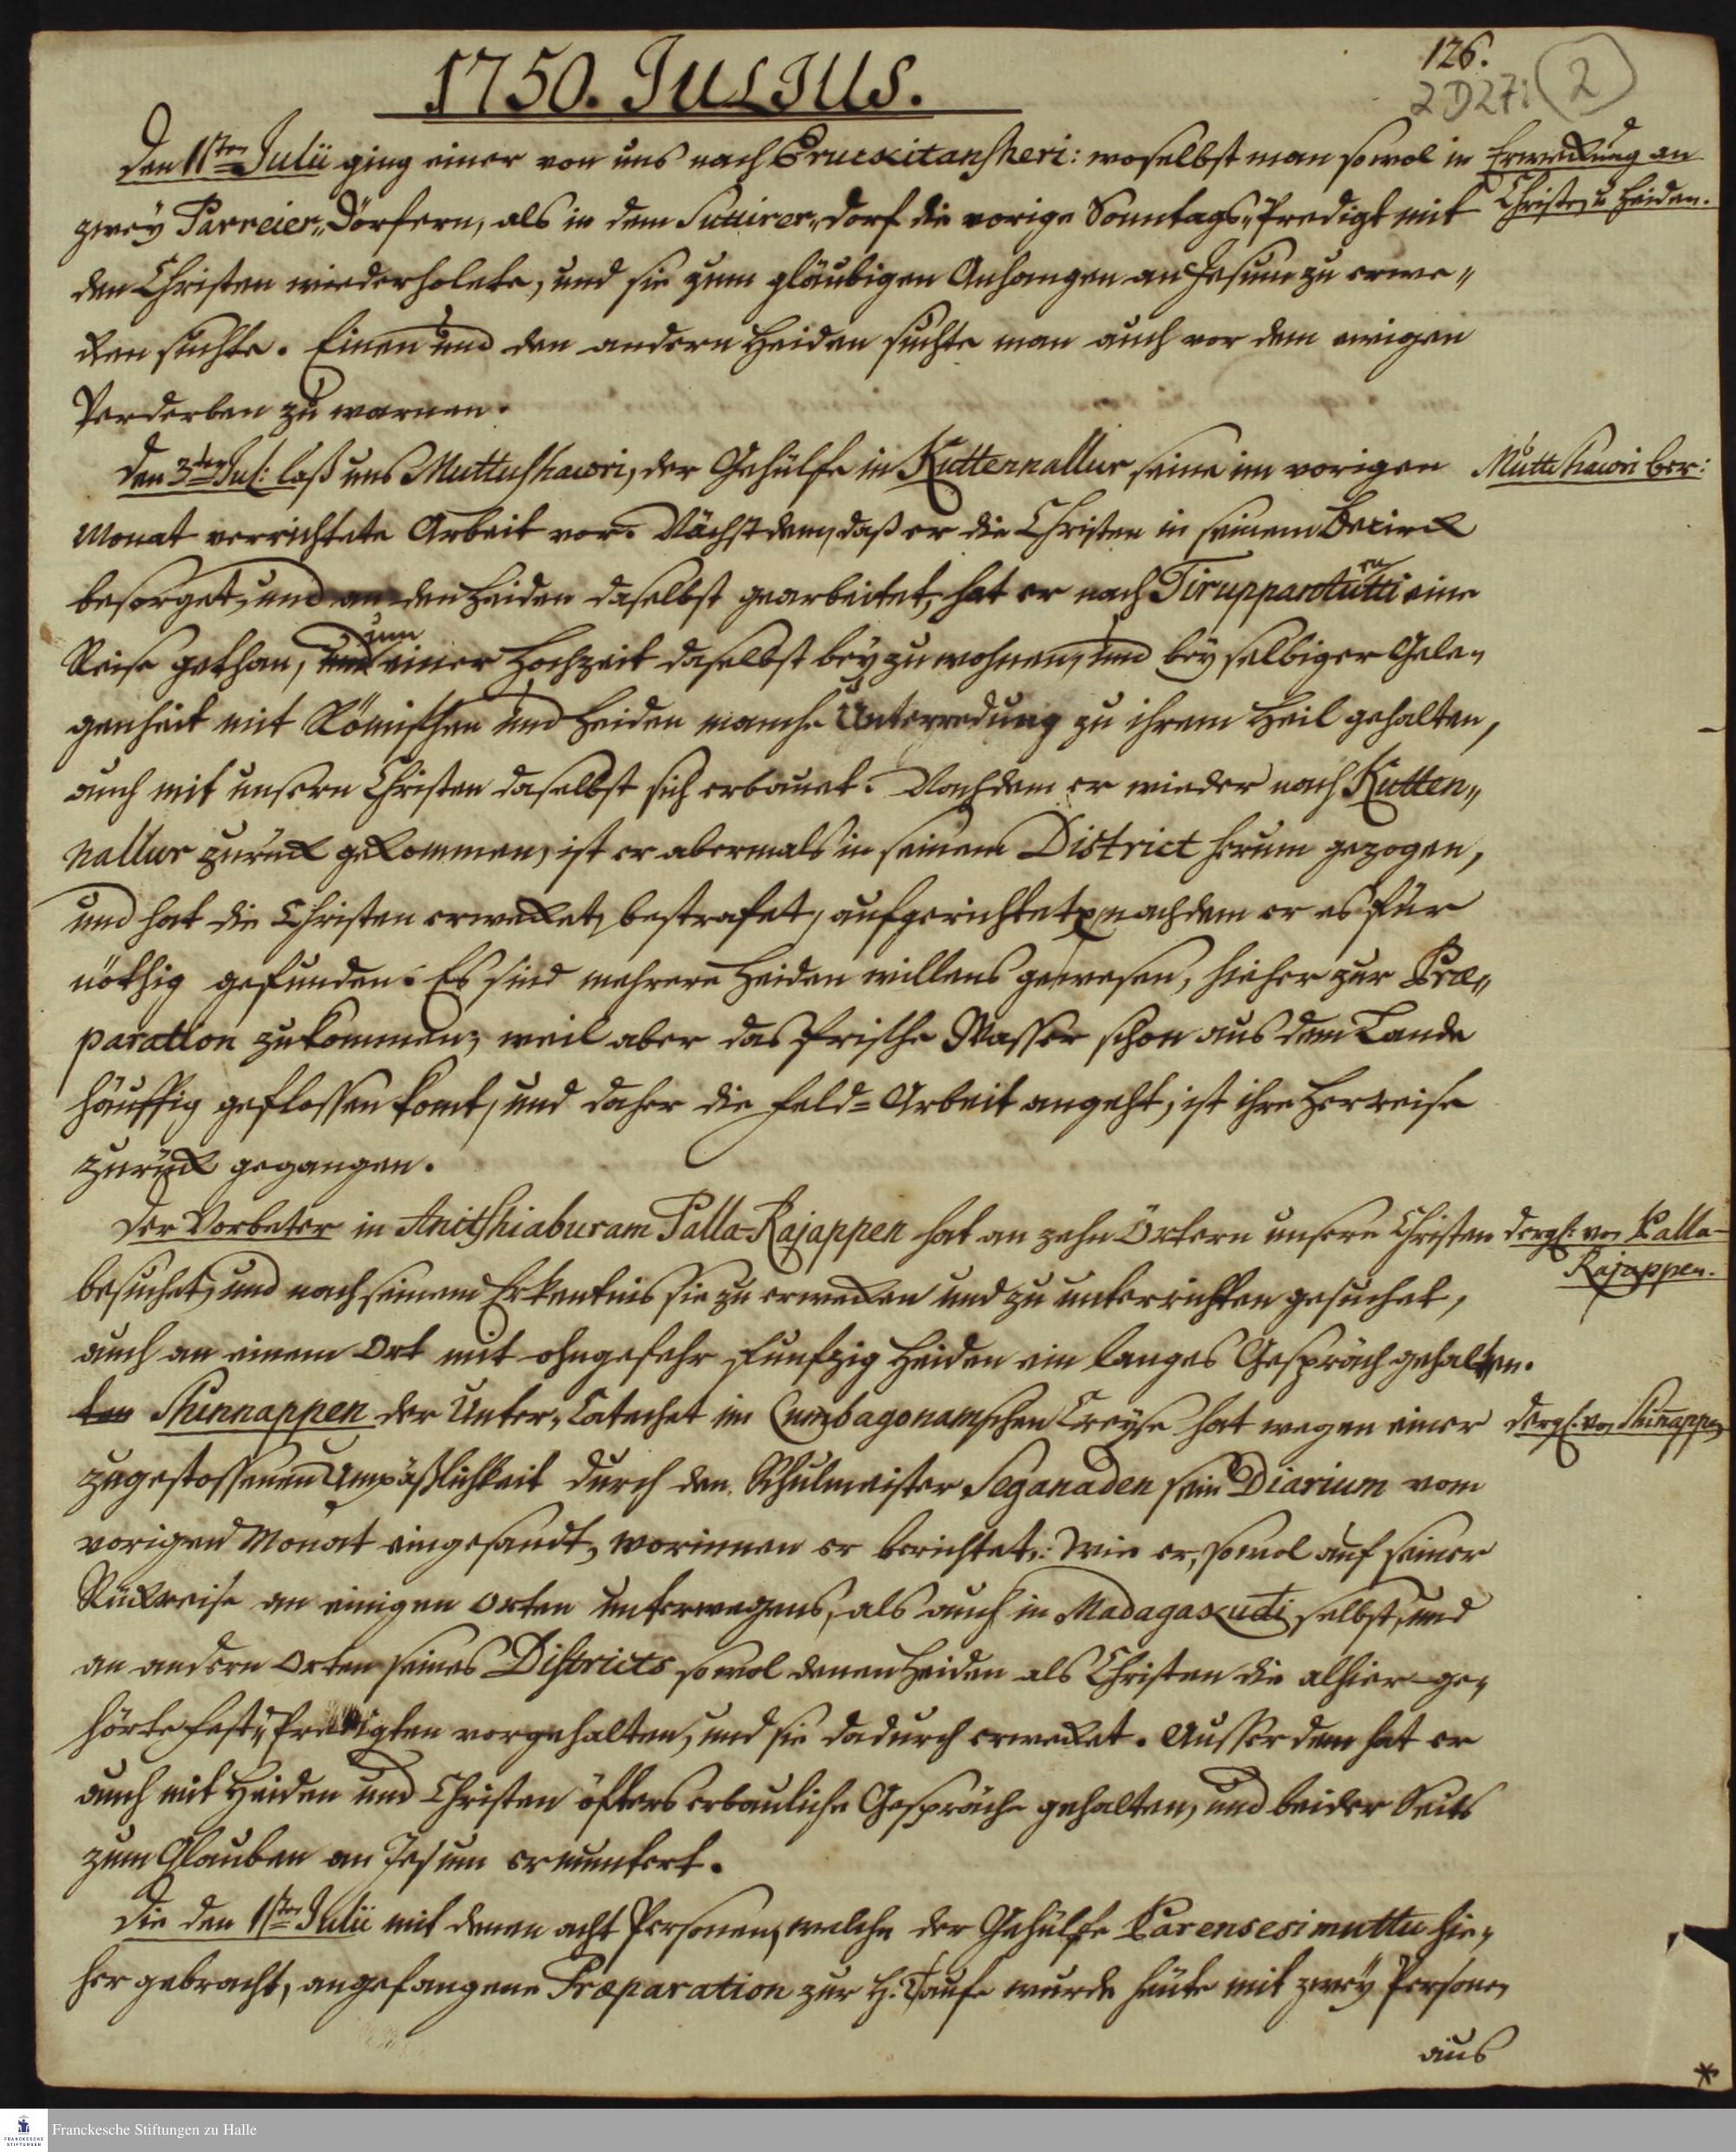 126.
2D27: 2
1750. JULIUS.
Den 1sten Julii ging einer von uns nach Erucxitansheri: woselbst man sowol in
Erweckung an
Christen u. Heiden.
zwey Parreier-Dörfern, als in dem Suttirer-dorf die vorige Sonntags-Predigt mit
den Christen wiederholete, und sie zum gläubigen Anhangen an Jesum zu erwe-
cken suchte. Einen und den andern Heiden suchte man auch vor dem ewigen
Verderben zu warnen.
Den 3ten Jul: laß uns Muttushawri, der Gehülfe in Kuttennallur seine im vorigen
Muttushawri ber:
Monat verrichtete Arbeit vor. Nächst dem, daß er die Christen in seinem Bezirck
besorget, und an den Heiden daselbst gearbeitet, hat er nach eine
Reise gethan, um einer Hochzeit daselbst beyzuwohnen, und bey selbiger Gele-
genheit mit Römischen und Heiden manche Unterredung zu ihrem Heil gehalten,
auch mit unsern Christen daselbst sich erbauet. Nachdem er wieder nach Kutten-
nallur zurück gekommen, ist er abermals in seinem District herum gezogen,
und hat die Christen erwecket, bestrafet, aufgerichtet, nachdem er es für
nöthig gefunden. Es sind mehrere Heiden willens gewesen, hieher zur Præ-
paration zu kommen; weil aber das frische Wasser schon aus dem Lande
häuffig geflossen komt, und daher die Feld-Arbeit angeht, ist ihre Herreise
zurück gegangen.
Der Vorbeter in Anitshiaburam Palla-Rajappen hat an zehn Örtern unsere Christen
dergl. von Palla-
Rajappen.
besuchet, und nach seinem Erkentnis sie zu erwecken und zu unterrichten gesuchet,
auch an einem Ort mit ohngefehr funfzig Heiden ein langes Gespräch gehalten.
Shinnappen der Unter-Catechet im Cumbagonamschen Creyse hat wegen einer
dergl. von Shiñappen
zugestossenen Unpäßlichkeit durch den Schulmeister Seganaden sein Diarium vom
vorigen Monat eingesandt, worinnen er berichtet: wie er, sowol auf seiner
Rückreise an einigen Orten unterwegens, als auch in Madagaxudi selbst, und
an andern Orten seines Districts sowol denen Heiden als Christen die alhier ge-
hörte Fest-Predigten vorgehalten, und sie dadurch erwecket. Ausser dem hat er
auch mit Heiden und Christen öfters erbauliche Gespräche gehalten, und beider Seits
zum Glauben an Jesum ermuntert.
Die den 1sten Julii mit denen acht Personen, welche der Gehülfe Parensesimuttu hie-
her gebracht, angefangene Præparation zur H. Taufe wurde heute mit zwey Personen
aus
*
FRANCKESCHE
STIFTUNGEN
Franckesche Stiftungen zu Halle